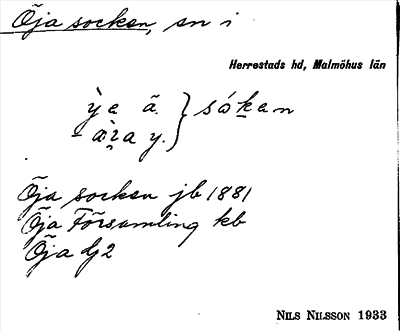 Öja socken, sn i
Herrestads hd, Malmöhus län
ỳe ã. } sókan
y.
Öja socken jb 1881
Öja Församling kb
Öja dj2
NILS NILSSON 1933